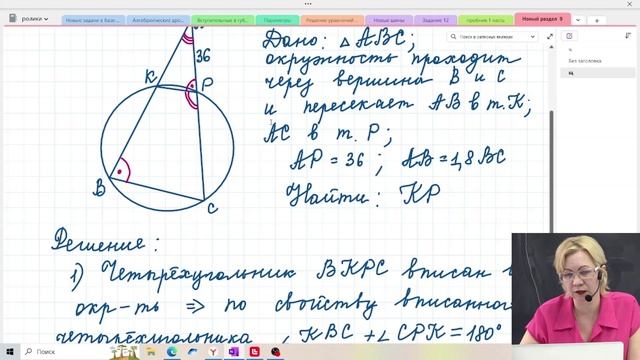 ролики
Новые задачи в базе
Алгебраические дро
Вступительные в губ
Параметры
Решение уравнений
Новые шины
Задание 12
пробник 1 маты
Новый раздел 9
Поиск в записных книжках
Без заголовка
36
К
Р
В
С
Дано: △ ABC;
окружность проходит
через вершина B и C
и пересекает AB в т. K;
AC в т. P;
AP = 36 ; AB = 1,8 BC
Найти: KP
Решение:
1) Четырёхугольник BKPC вписан
окр-ть ⇒ по свойству вписанного
четырёхугольника ∠KBC + ∠CPK = 180°
Поиск